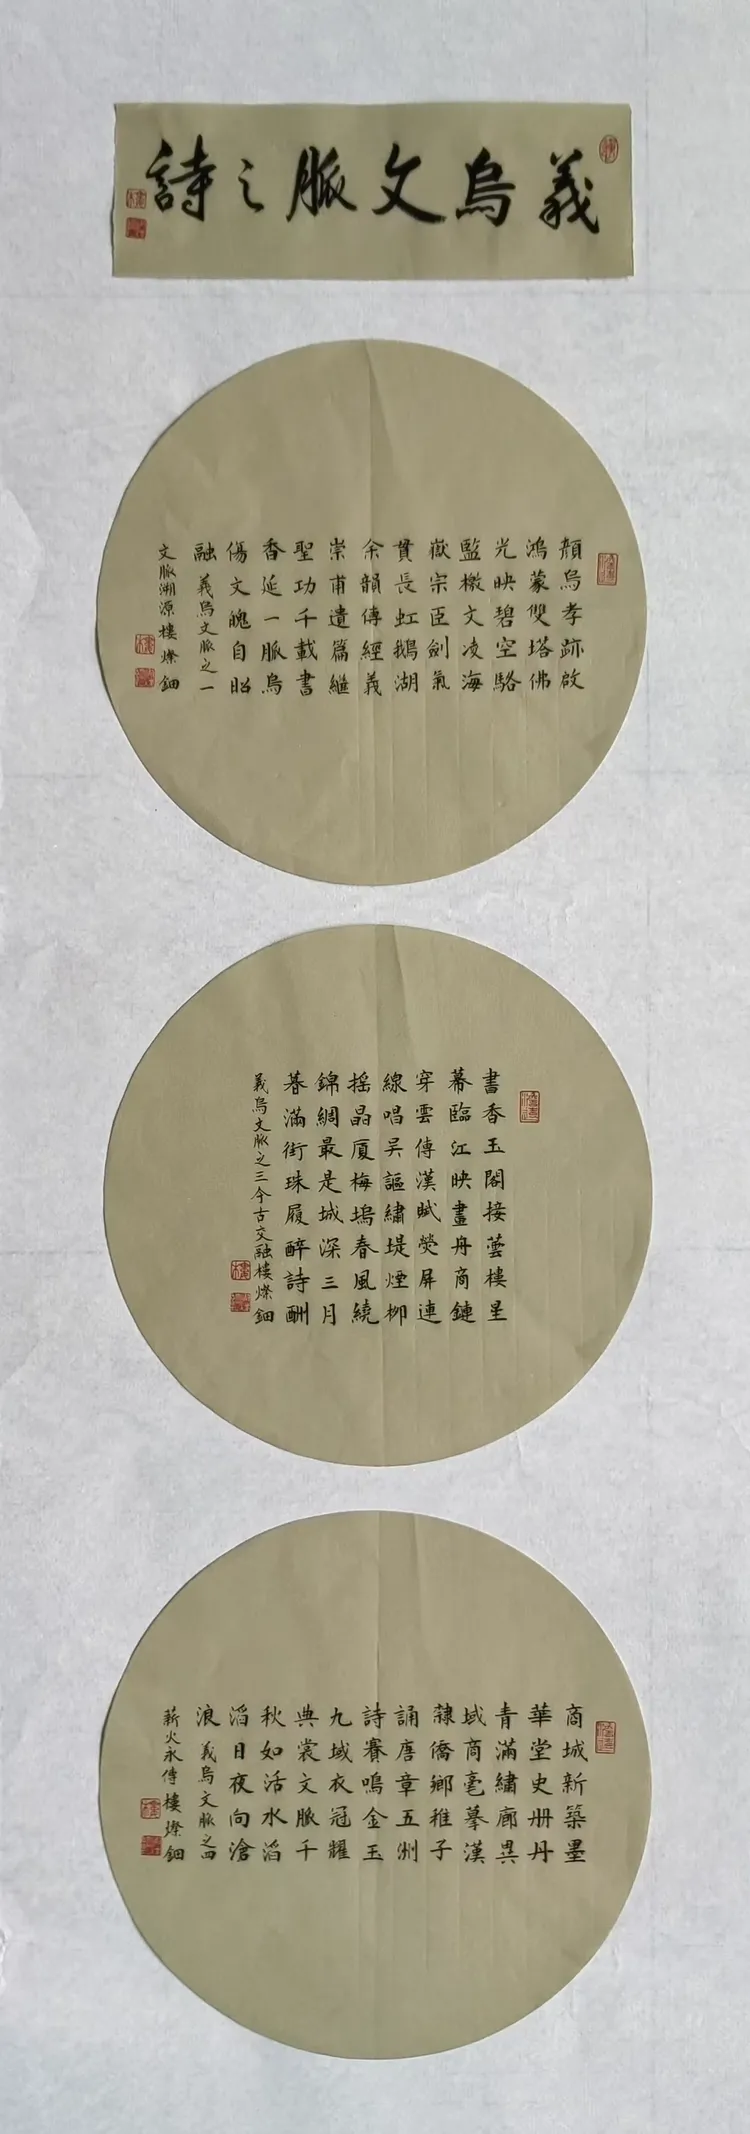 義烏文脈之詩
顏烏孝跡啟
鴻蒙雙塔佛
光映碧空駱
監檄文凌海
嶽宗臣劍氣
貫長虹鵝湖
余韻傳經義
崇甫遺篇繼
聖功千載書
香延一脈烏
傷文魄自昭
融 義烏文脈之一
文脈溯源樓燦鈿
書香玉閣接蕓樓星
幕臨江映畫舟商鏈
穿雲傳漢賦熒屏連
線唱吳謳繡堤煙柳
搖晶廈梅塢春風繞
錦綢最是城深三月
暮滿街珠履醉詩酬
義烏文脈之三今古交融樓燦鈿
商城新築墨
華堂史册丹
青滿繡廊異
域商毫摹漢
隸僑鄉稚子
誦唐章五洲
詩賽鳴金玉
九域衣冠耀
典裳文脈千
秋如活水滔
滔日夜向滄
浪 義烏文脈之四
薪火永傳樓燦鈿